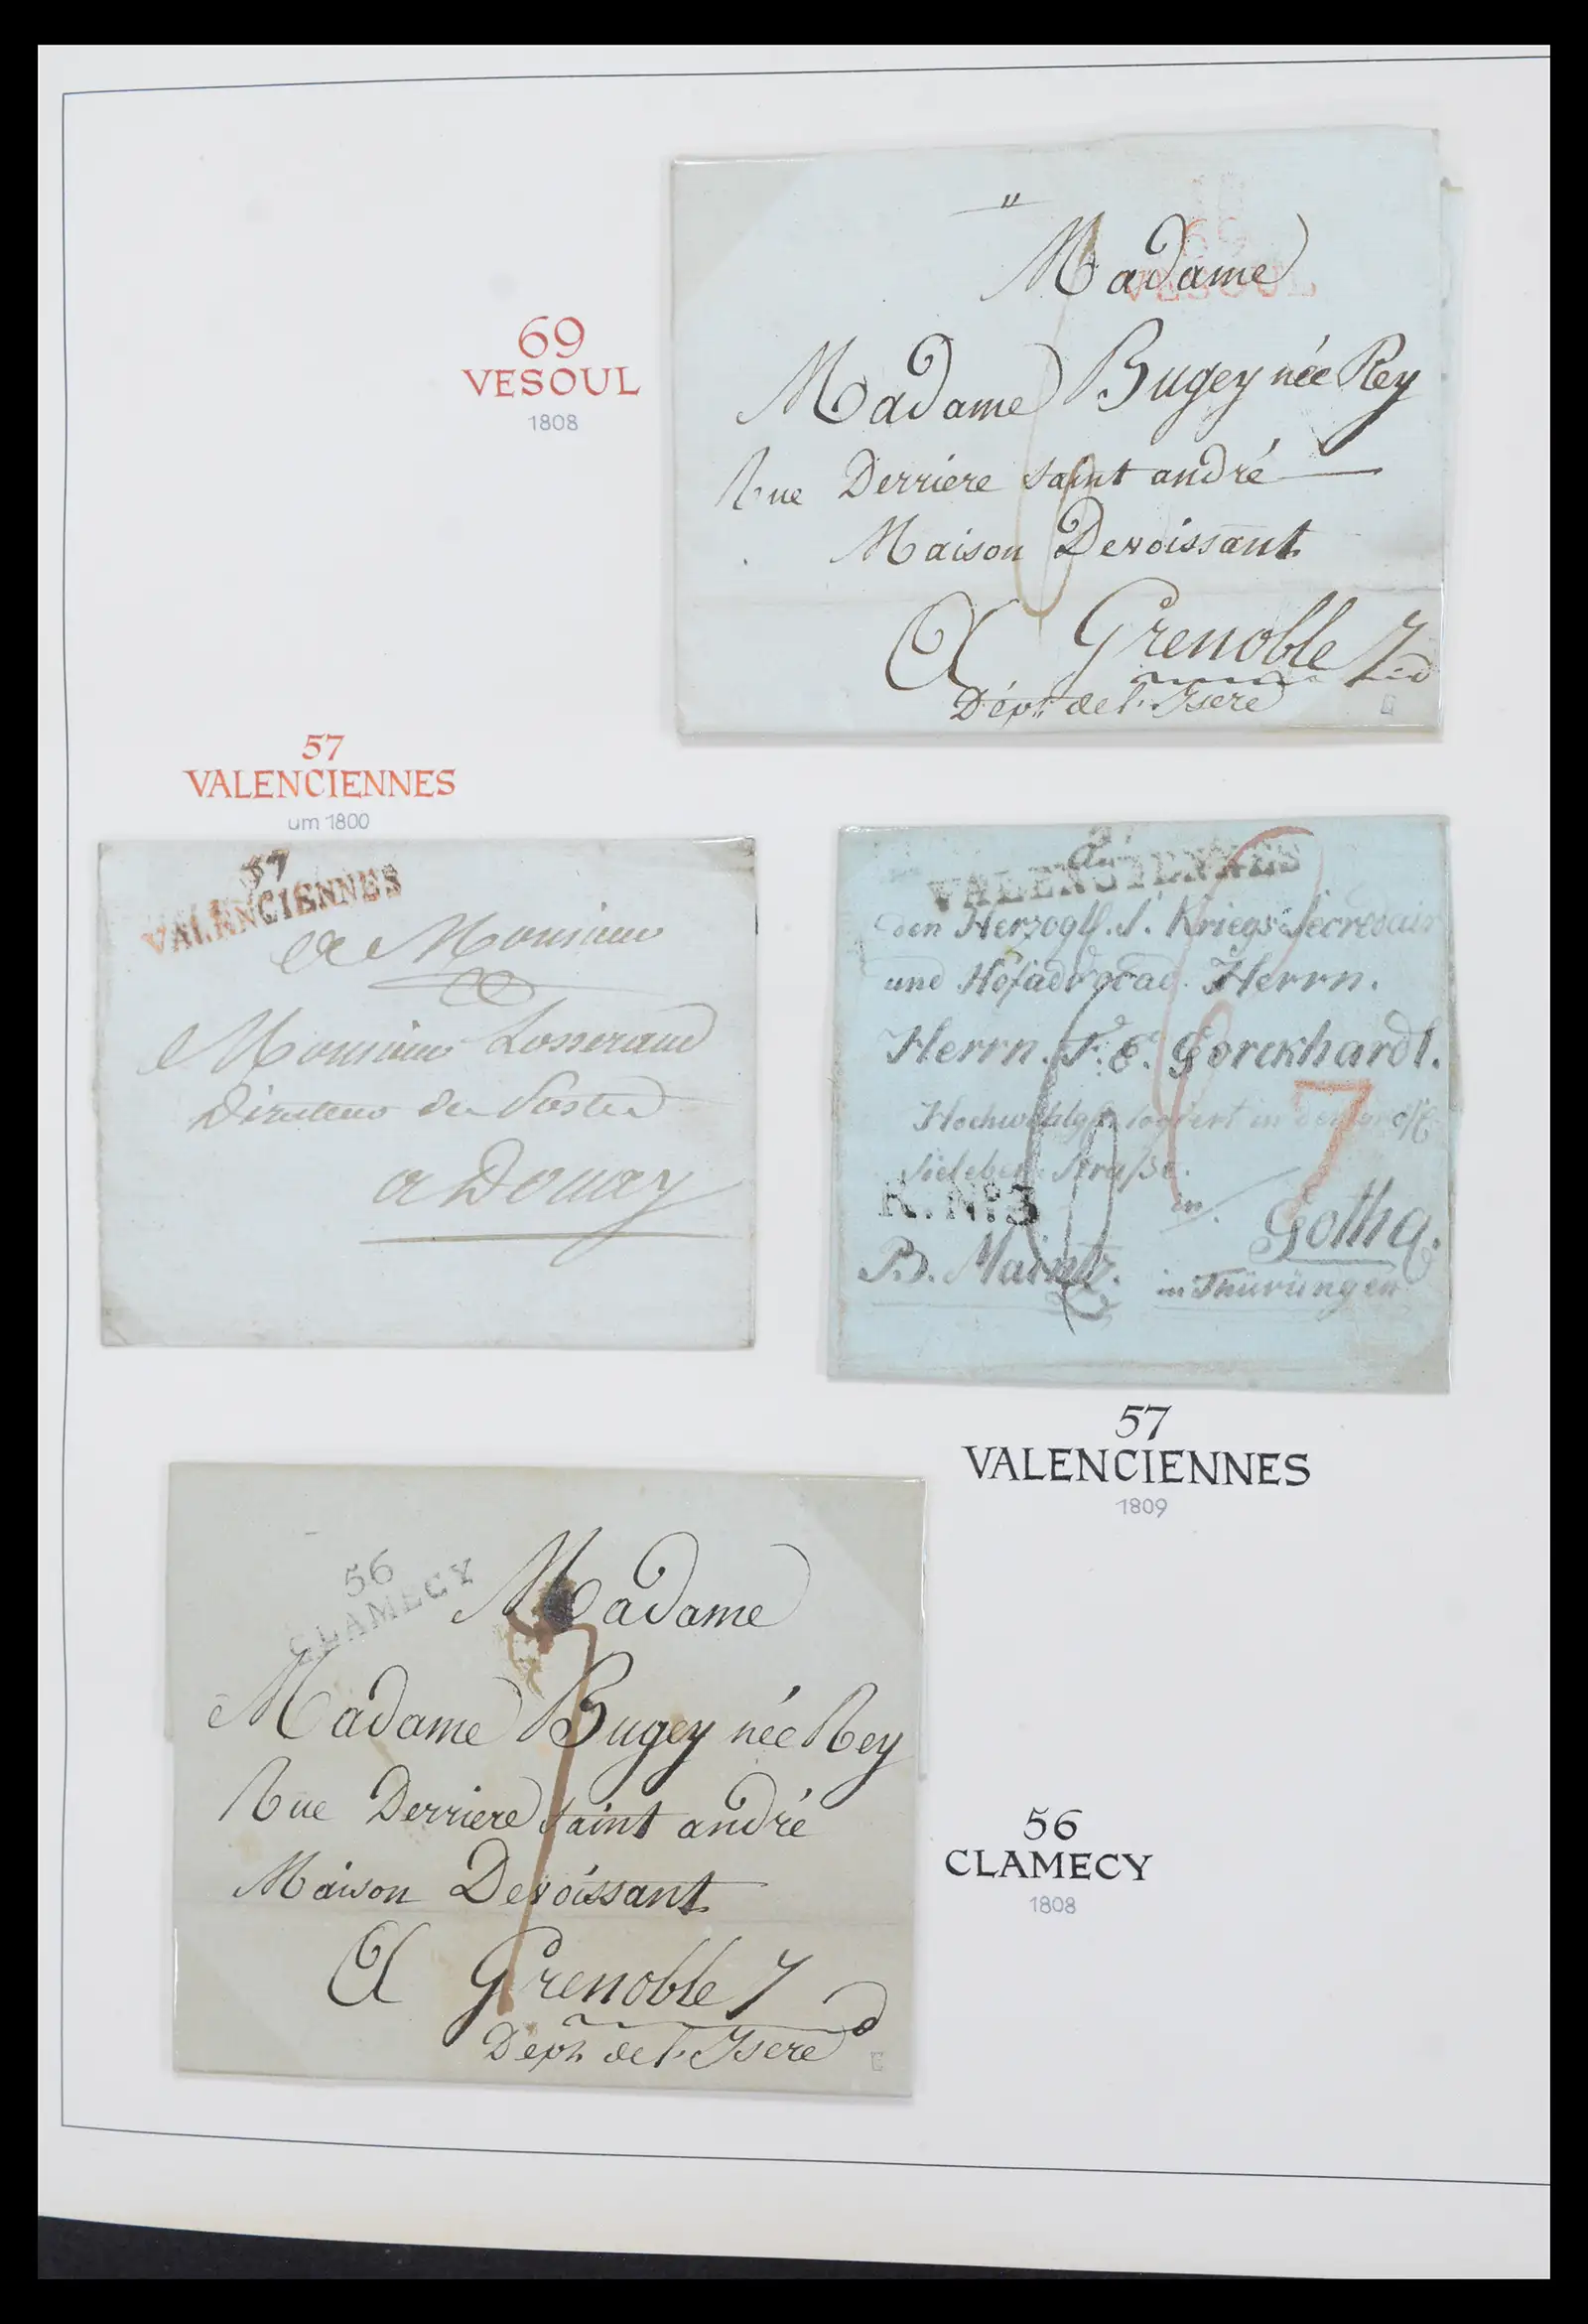 69
VESOUL
1808
69
VESOUL
Madame
Madame Bugey née Rey
Rue Derriere saint andré
Maison Devoissant
A Grenoble
Dépt. de l'Isere
57
VALENCIENNES
um 1800
57
VALENCIENNES
A Monsieur
Monsieur Losserand
Directeur des Postes
a Douay
VALENCIENNES
An
den Herzogl. S. Kriegs-Secretair
und Hofadvocat. Herrn.
Herrn. F. E.
Hochwohlgb. logiert in der
Sieleber Straße.
R. No. 3
in.
Gotha.
P. Maintz.
in Thürüngen
57
VALENCIENNES
1809
56
CLAMECY
Madame
Madame Bugey née Rey
Rue Derriere saint andré
Maison Devoissant
A Grenoble
Dépt. de l'Isere
56
CLAMECY
1808